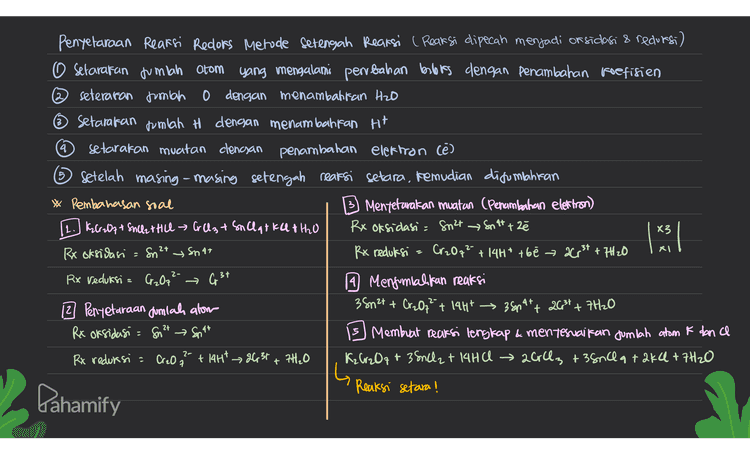 Penyetaraan Reaksi Redoks Metode Setengah Reaksi (Reaksi dipecah menjadi oksidasi & reduksi)
① Setarakan jumlah atom yang mengalami perubahan biloks dengan penambahan koefisien
② setarakan jumlah O dengan menambahkan H₂O
③ Setarakan jumlah H dengan menambahkan H⁺
④ setarakan muatan dengan penambahan elektron (ē)
⑤ Setelah masing-masing setengah reaksi setara, kemudian dijumlahkan
※ Pembahasan soal
1. K₂Cr₂O₇ + SnCl₂ + HCl → CrCl₃ + SnCl₄ + KCl + H₂O
Rx oksidasi = Sn²⁺ → Sn⁴⁺
Rx reduksi = Cr₂O₇²⁻ → Cr³⁺
2 Penyetaraan jumlah atom
Rx oksidasi = Sn²⁺ → Sn⁴⁺
Rx reduksi = Cr₂O₇²⁻ + 14H⁺ → 2Cr³⁺ + 7H₂O
3 Menyetarakan muatan (Penambahan elektron)
Rx oksidasi = Sn²⁺ → Sn⁴⁺ + 2ē | x3
Rx reduksi = Cr₂O₇²⁻ + 14H⁺ + 6ē → 2Cr³⁺ + 7H₂O | x1
4 Menjumlahkan reaksi
3Sn²⁺ + Cr₂O₇²⁻ + 14H⁺ → 3Sn⁴⁺ + 2Cr³⁺ + 7H₂O
5 Membuat reaksi lengkap & menyesuaikan jumlah atom K dan Cl
K₂Cr₂O₇ + 3SnCl₂ + 14HCl → 2CrCl₃ + 3SnCl₄ + 2KCl + 7H₂O
↳ Reaksi setara!
Pahamify